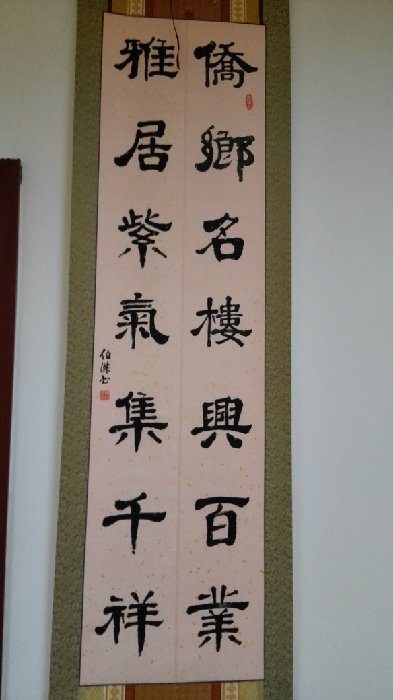 僑鄉名樓興百業
雅居紫氣集千祥